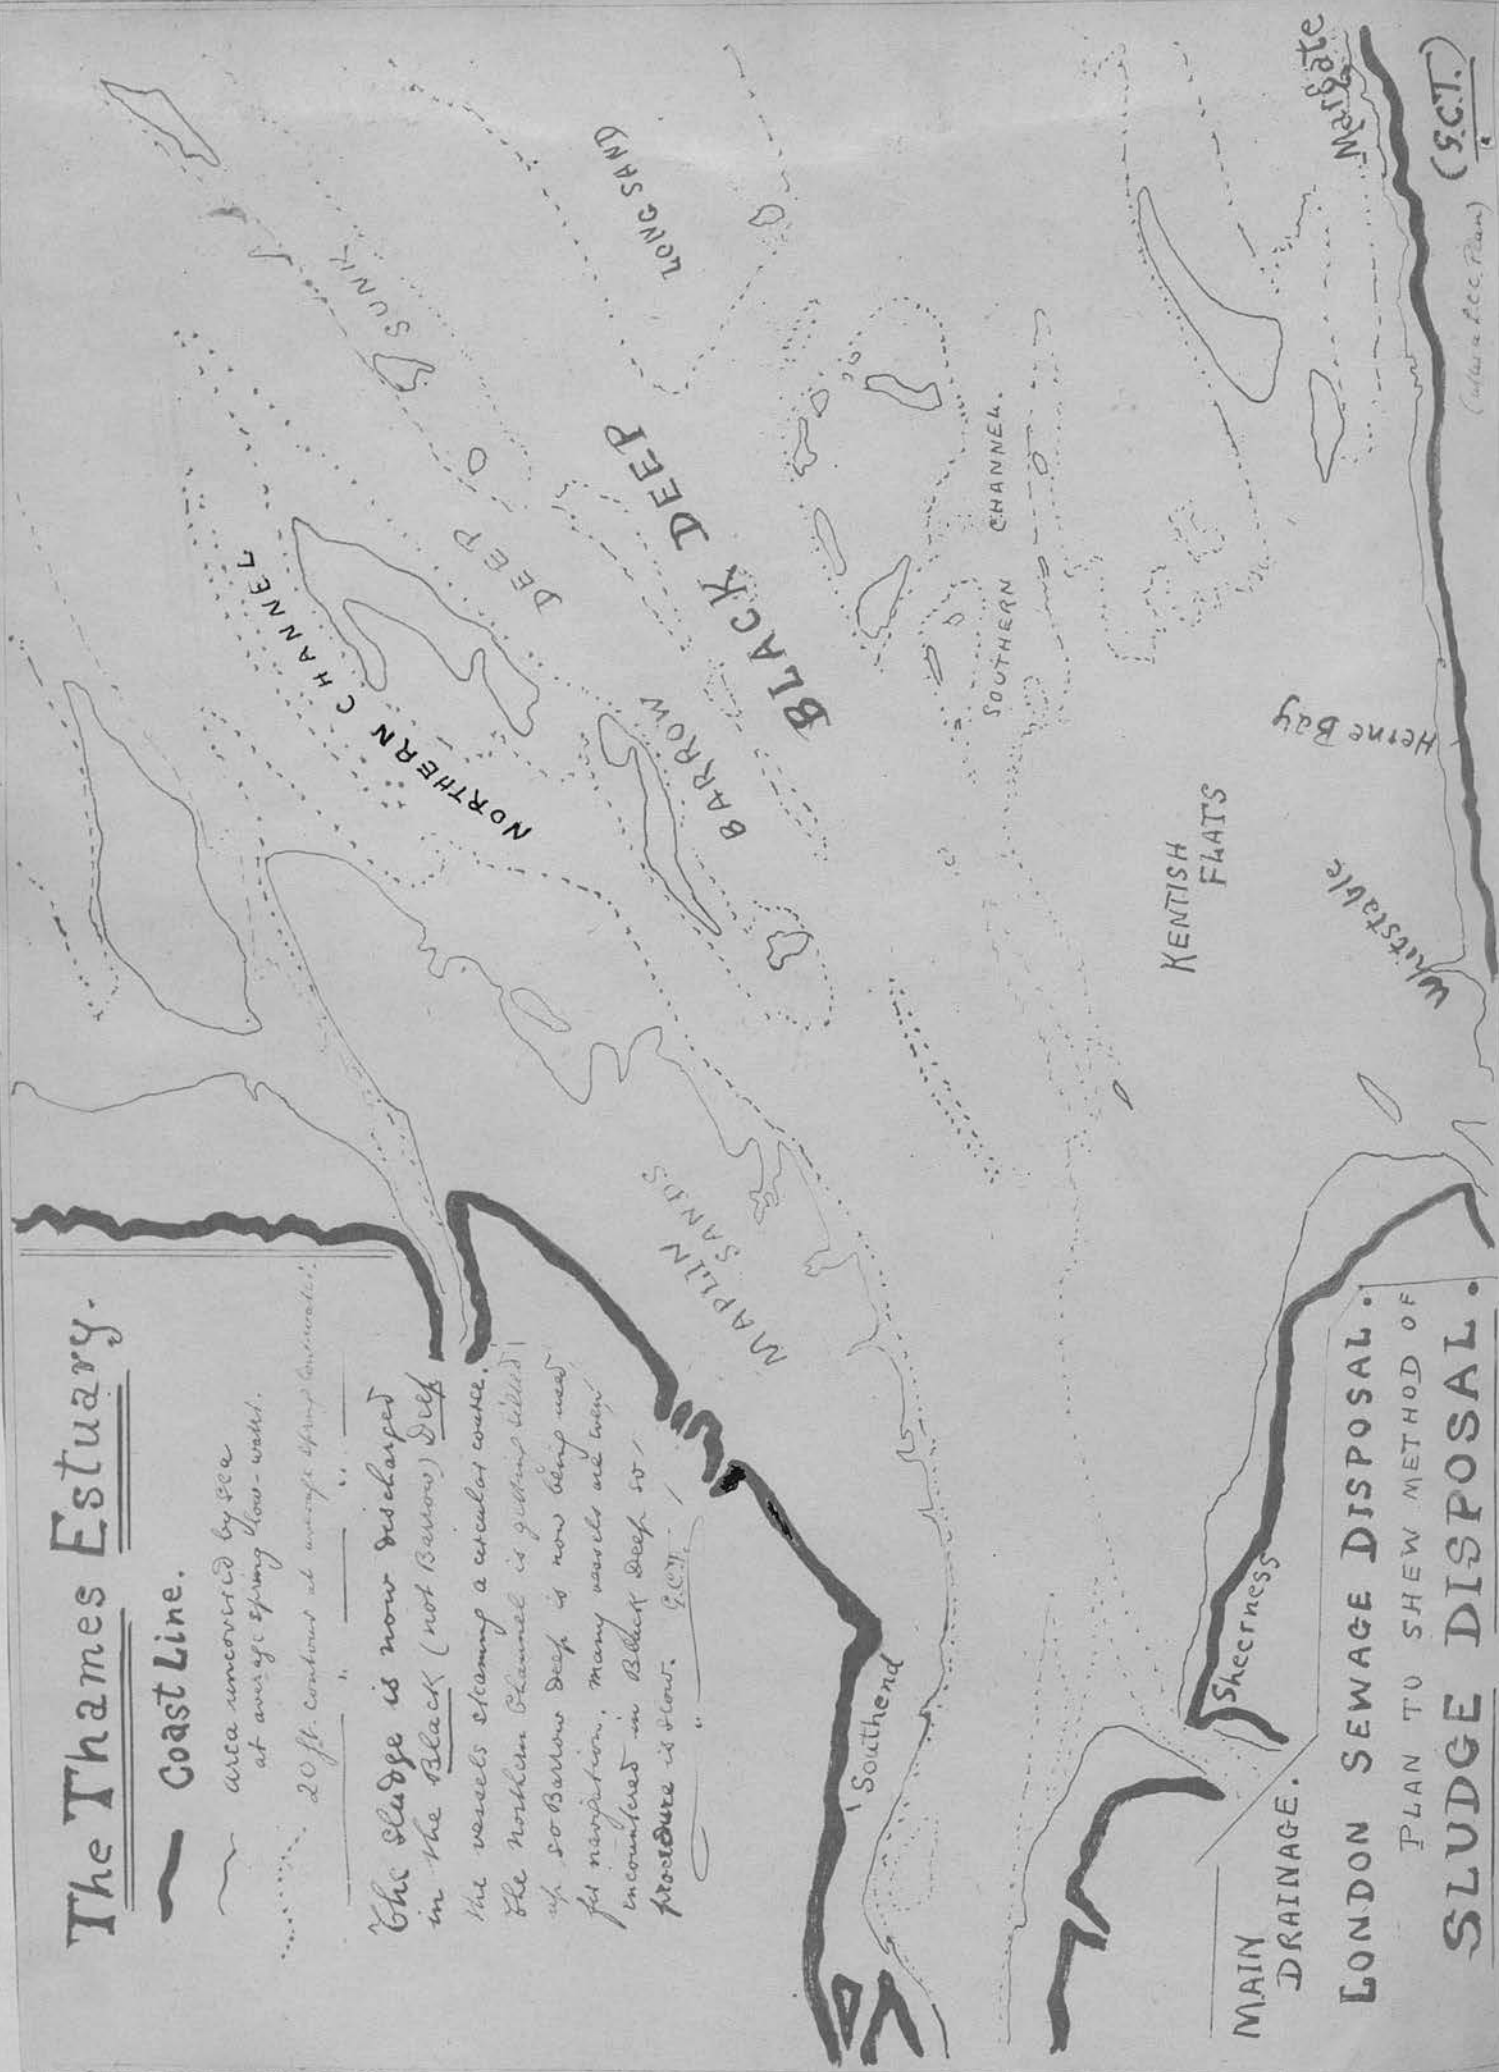 The Thames Estuary.
Coast Line.
area uncovered by sea
at average spring low-water.
20 ft. contour at average spring low water.
" "
The sludge is now discharged
in the Black (not Barrow) Deep
the vessels steaming a circular course.
The Northern Channel is getting silted
up so Barrow deep is now being used
for navigation. Many vessels are even
encountered in Black Deep so
procedure is slow.
G.C.T.
NORTHERN CHANNEL
SUNK
LONG SAND
BARROW DEEP
BLACK DEEP
SOUTHERN CHANNEL.
MAPLIN
SANDS
KENTISH
FLATS
Margate
Herne Bay
Whitstable
Southend
Sheerness
MAIN
DRAINAGE.
LONDON SEWAGE DISPOSAL.
PLAN TO SHEW METHOD OF
SLUDGE DISPOSAL.
Plan)
(G.C.T.)